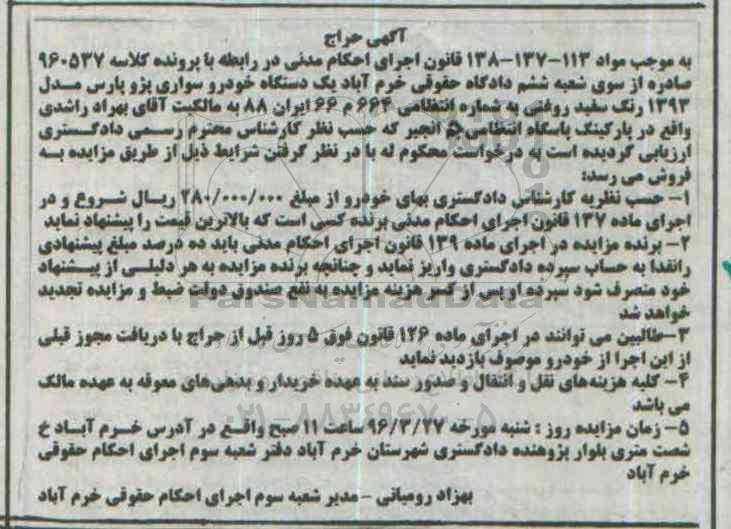 آگهی حراج
به موجب مواد ۱۱۳-۱۳۷-۱۳۸ قانون اجرای احکام مدنی در رابطه با پرونده کلاسه ۹۶۰۵۳۷
صادره از سوی شعبه ششم دادگاه حقوقی خرم آباد یک دستگاه خودرو سواری پژو پارس مدل
۱۳۹۳ رنگ سفید روغنی به شماره انتظامی ۶۶۴ م ۶۶ ایران ۸۸ به مالکیت آقای بهراد راشدی
واقع در پارکینگ پاسگاه انتظامی انجیر که حسب نظر کارشناس محترم رسمی دادگستری
ارزیابی گردیده است به درخواست محکوم له با در نظر گرفتن شرایط ذیل از طریق مزایده به
فروش می رسد:
۱- حسب نظریه کارشناس دادگستری بهای خودرو از مبلغ ۲۸۰/۰۰۰/۰۰۰ ریال شروع و در
اجرای ماده ۱۳۷ قانون اجرای احکام مدنی برنده کسی است که بالاترین قیمت را پیشنهاد نماید
۲- برنده مزایده در اجرای ماده ۱۳۹ قانون اجرای احکام مدنی باید ده درصد مبلغ پیشنهادی
رانقدا به حساب سپرده دادگستری واریز نماید و چنانچه برنده مزایده به هر دلیلی از پیشنهاد
خود منصرف شود سپرده او پس از کسر هزینه مزایده به نفع صندوق دولت ضبط و مزایده تجدید
خواهد شد
۳-طالبین می توانند در اجرای ماده ۱۲۶ قانون فوق ۵ روز قبل از حراج با دریافت مجوز قبلی
از این اجرا از خودرو موصوف بازدید نماید
۴- کلیه هزینه های نقل و انتقال و صدور سند به عهده خریدار و بدهی های معوقه به عهده مالک
می باشد
۵- زمان مزایده روز : شنبه مورخه ۹۶/۳/۲۷ ساعت ۱۱ صبح واقع در آدرس خرم آباد خ
شصت متری بلوار پژوهنده دادگستری شهرستان خرم آباد دفتر شعبه سوم اجرای احکام حقوقی
خرم آباد
بهزاد رومیانی - مدیر شعبه سوم اجرای احکام حقوقی خرم آباد
ParsNamadData
۰۲۱-۸۸۳۴۹۶۷۰-۵